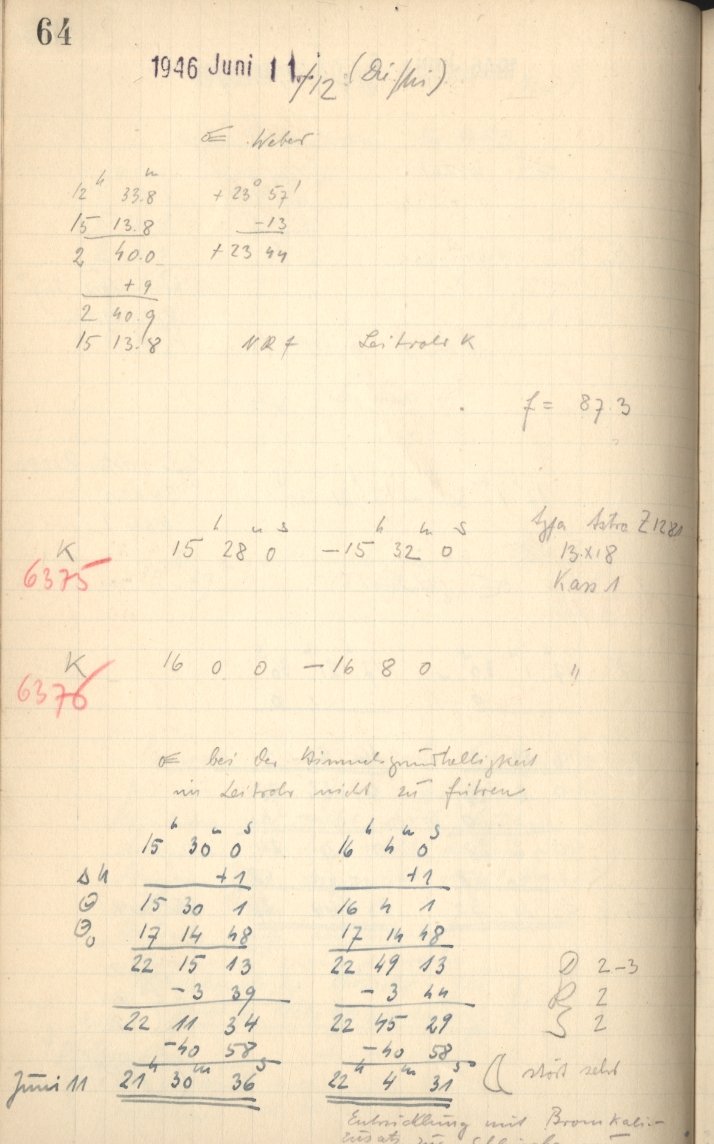 64
1946 Juni 11./12 (Di/Mi)
☄ Weber
12ʰ 33.8ᵐ +23° 57'
15 13.8 -13
2 40.0 +23 44
+9
2 40.9
15 13.8 NR 7 Leitrohr K
f = 87.3
K 15ʰ 28ᵐ 0ˢ —15ʰ 32ᵐ 0ˢ Agfa Astro Z1281
6375 13x18
Kass 1
K 16 0 0 —16 8 0 "
6376
☄ bei der Himmelsgrundhelligkeit
im Leitrohr nicht zu führen
15ʰ 30ᵐ 0ˢ 16ʰ 4ᵐ 0ˢ
Δu +1 +1
Θ 15 30 1 16 4 1
Θ₀ 17 14 48 17 14 48
22 15 13 22 49 13 D 2-3
-3 39 -3 44 R 2
22 11 34 22 45 29 S 2
-40 58 -40 58
Juni 11 21ʰ 30ᵐ 36ˢ 22ʰ 4ᵐ 31ˢ ☾ stört sehr
Entwicklung mit Bromkali-
zusatz